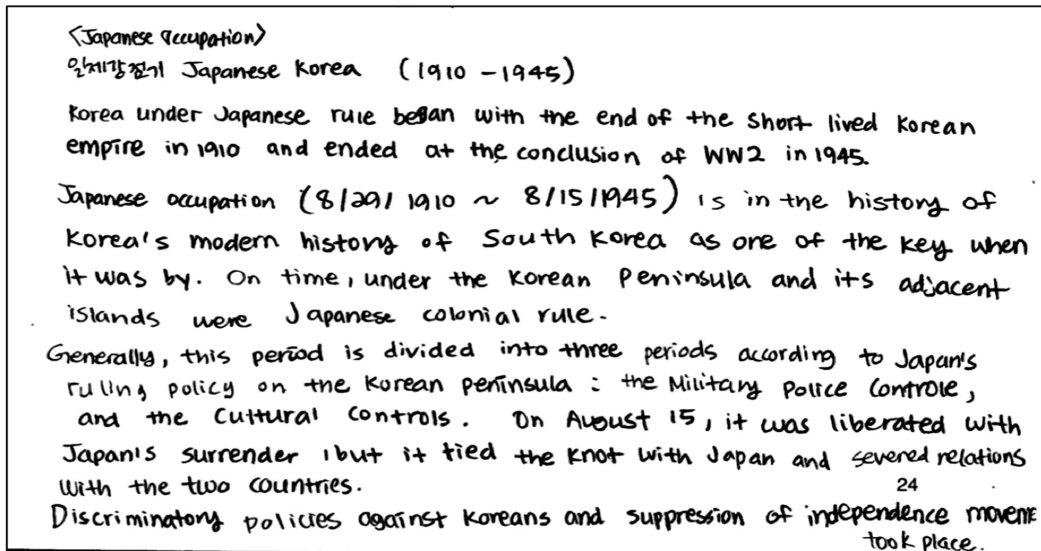 <Japanese occupation>
일제강점기 Japanese Korea (1910 - 1945)
Korea under Japanese rule began with the end of the short lived Korean
empire in 1910 and ended at the conclusion of WW2 in 1945.
Japanese occupation (8/29/1910 ~ 8/15/1945) is in the history of
Korea's modern history of South Korea as one of the key when
it was by. On time, under the Korean Peninsula and its adjacent
islands were Japanese colonial rule.
Generally, this period is divided into three periods according to Japan's
ruling policy on the Korean peninsula : the Military Police Controle,
and the Cultural Controls. On August 15, it was liberated with
Japan's surrender, but it tied the knot with Japan and severed relations
with the two countries.
24
Discriminatory policies against Koreans and suppression of independence moveme
took place.